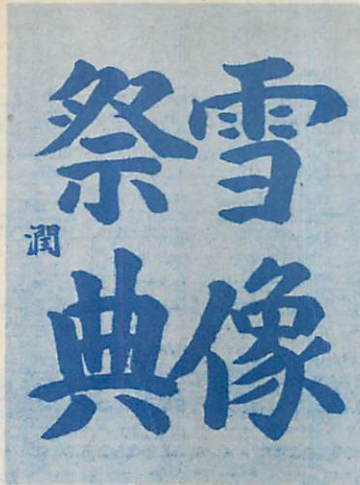 雪像
祭典
潤